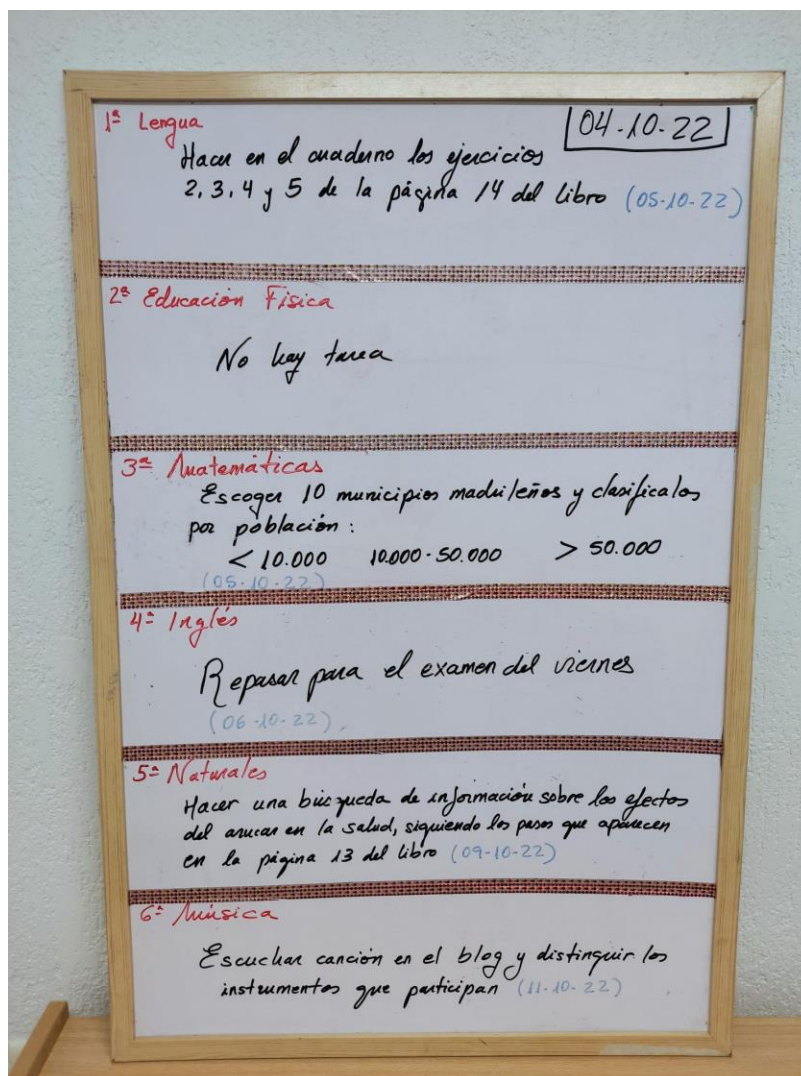 1ª Lengua
04-10-22
Hacer en el cuaderno los ejercicios
2, 3, 4 y 5 de la página 14 del libro (05-10-22)
2ª Educación Física
No hay tarea
3ª Matemáticas
Escoger 10 municipios madrileños y clasificalos
por población :
< 10.000 10.000-50.000 > 50.000
(05-10-22)
4ª Inglés
Repasar para el examen del viernes
(06-10-22)
5ª Naturales
Hacer una búsqueda de información sobre los efectos
del azucar en la salud, siguiendo los pasos que aparecen
en la página 13 del libro (09-10-22)
6ª Música
Escuchar canción en el blog y distinguir los
instrumentos que participan (11-10-22)